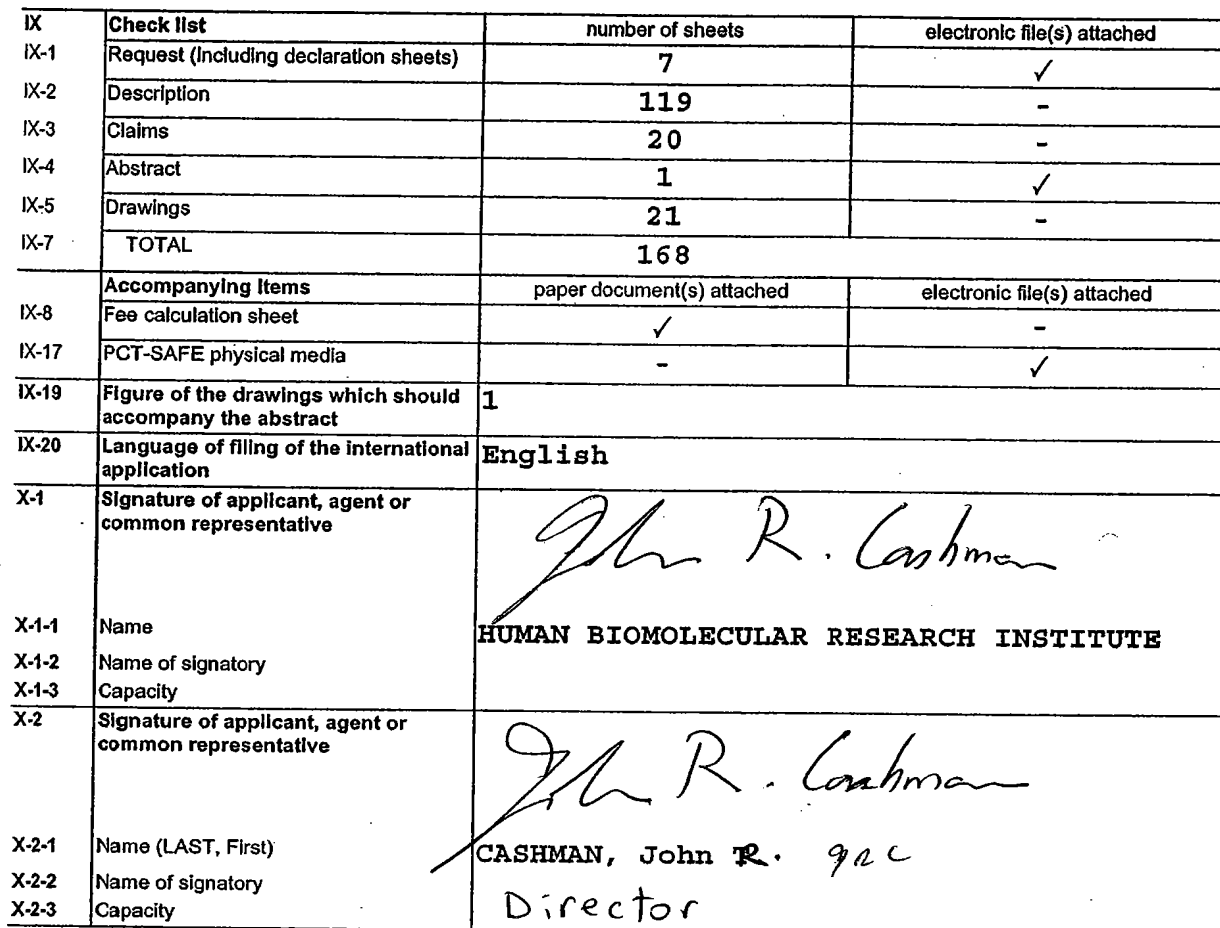 IX Check list number of sheets electronic file(s) attached
IX-1 Request (including declaration sheets) 7 ✓
IX-2 Description 119 -
IX-3 Claims 20 -
IX-4 Abstract 1 ✓
IX-5 Drawings 21 -
IX-7 TOTAL 168
Accompanying Items paper document(s) attached electronic file(s) attached
IX-8 Fee calculation sheet ✓ -
IX-17 PCT-SAFE physical media - ✓
IX-19 Figure of the drawings which should accompany the abstract 1
IX-20 Language of filing of the international application English
X-1 Signature of applicant, agent or common representative John R. Cashman
X-1-1 Name HUMAN BIOMOLECULAR RESEARCH INSTITUTE
X-1-2 Name of signatory
X-1-3 Capacity
X-2 Signature of applicant, agent or common representative John R. Cashman
X-2-1 Name (LAST, First) CASHMAN, John R.
X-2-2 Name of signatory
X-2-3 Capacity Director